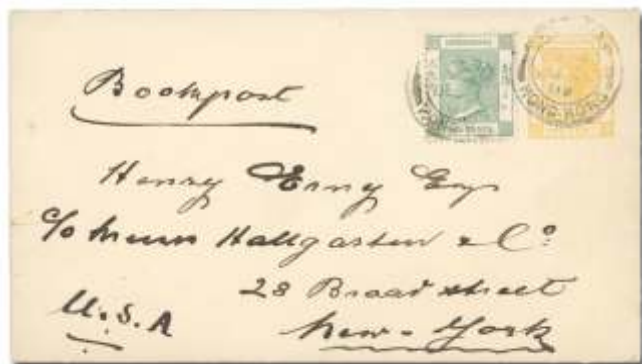 HONG KONG
Bookpost
Henry Erny Esq
c/o Messrs Hallgarten & Co
28 Broad street
U.S.A
New-York